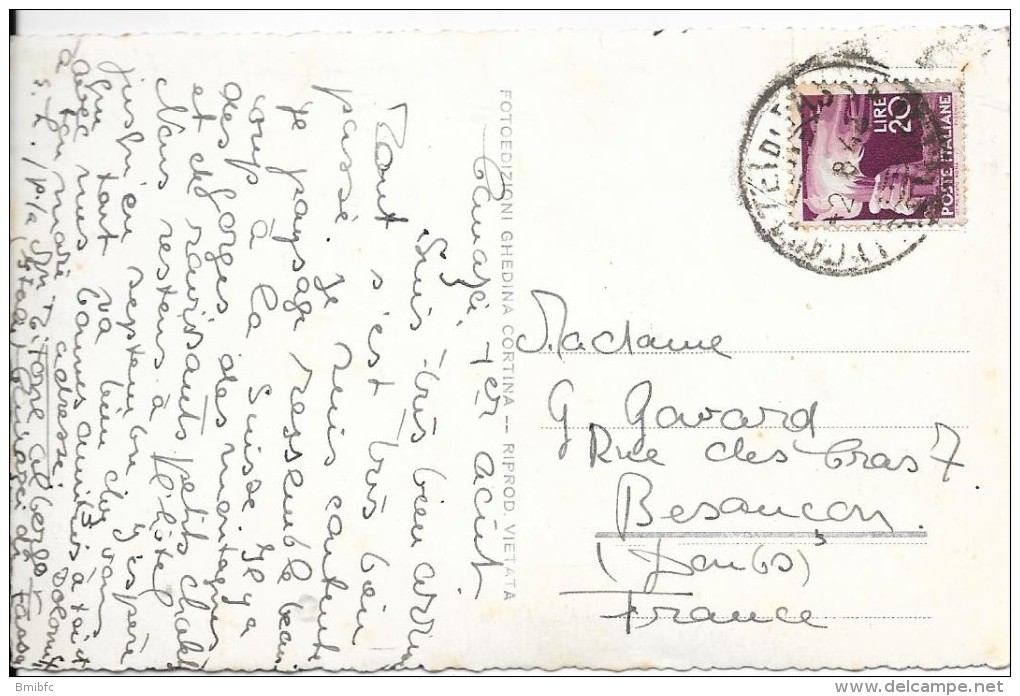 Canazei 1er août
Suis très bien arrivée
Tout s'est très bien
passé. Je suis contente
le paysage ressemble beau
coup à la Suisse. Il y a
des gorges des montagnes
et de ravissants petits chalets
Nous restons à l'hôtel
jusqu'en septembre j'espère
que tout va bien chez vous
avec mes bonnes amitiés à toi et
à ton mari adresse
Canazei di Fassa
FOTOEDIZIONI GHEDINA CORTINA — RIPROD. VIETATA
LIRE
20
POSTE ITALIANE
2.8.4
Madame
G Gavard
Rue des Gras 7
Besançon
(Doubs)
France
Bmibfc
delcampe.net